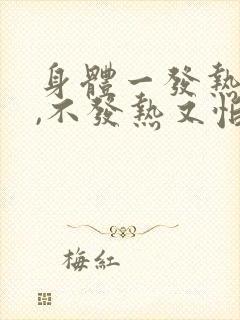 身體一發熱
,不發熱又怕
梅紅